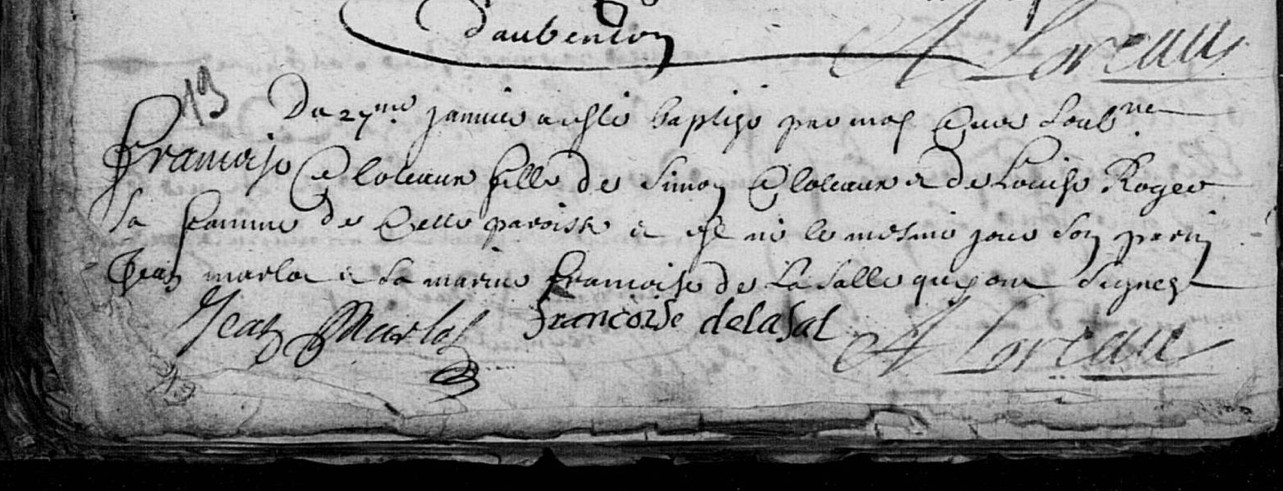 Daubenton
A Loreau
19
Du 27me Janvier a esté baptisé par moy Curé soubne
Francoise Coloteaux fille de Simon Coloteaux & de Louise Roger
sa femme de cette paroisse & est né le mesme jour son parin
Jean marlot & sa marine Francoise de La Salle qui ont signez
Jean Marlot francoise delasal A Loreau